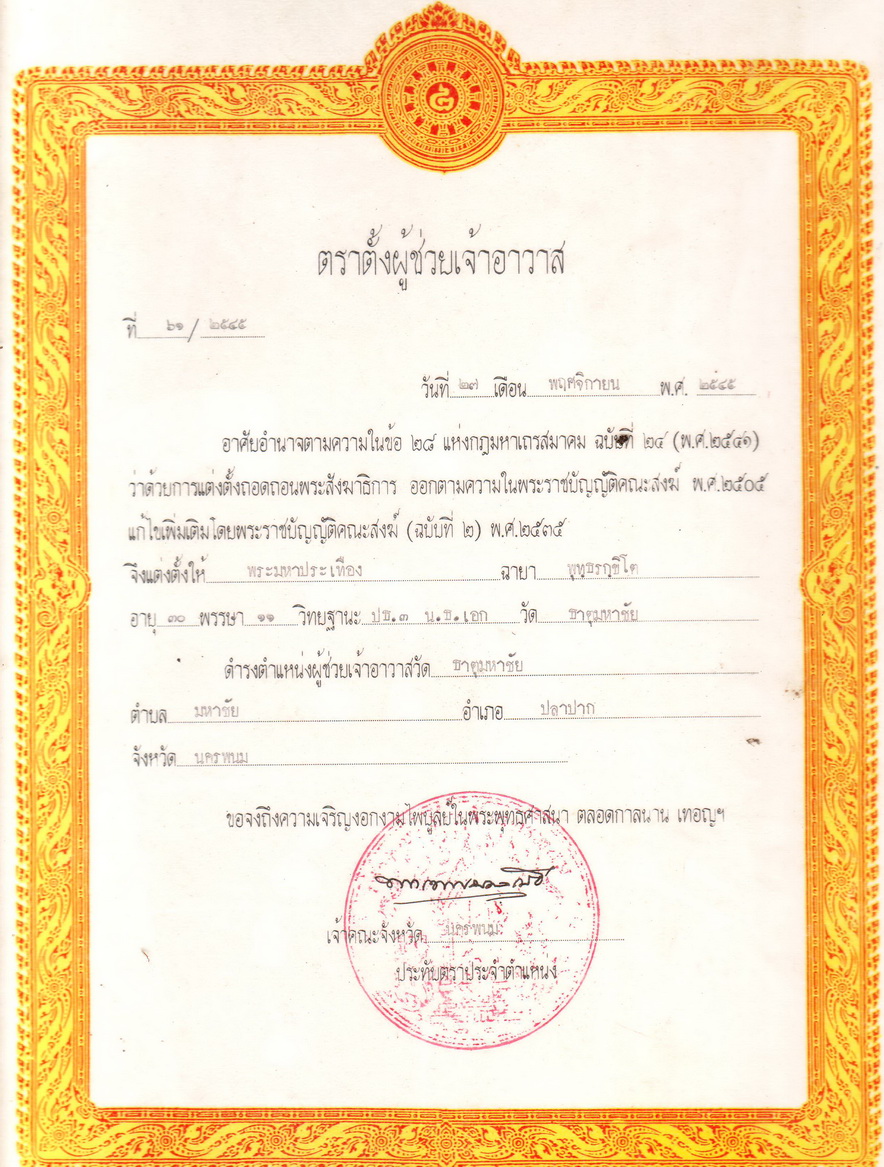 ตราตั้งผู้ช่วยเจ้าอาวาส
ที่ ๖๑ / ๒๕๔๕
วันที่ ๒๗ เดือน พฤศจิกายน พ.ศ. ๒๕๔๕
อาศัยอำนาจตามความในข้อ ๒๘ แห่งกฎมหาเถรสมาคม ฉบับที่ ๒๔ (พ.ศ.๒๕๔๑)
ว่าด้วยการแต่งตั้งถอดถอนพระสังฆาธิการ ออกตามความในพระราชบัญญัติคณะสงฆ์ พ.ศ.๒๕๐๕
แก้ไขเพิ่มเติมโดยพระราชบัญญัติคณะสงฆ์ (ฉบับที่ ๒) พ.ศ.๒๕๓๕
จึงแต่งตั้งให้ พระมหาประเทือง ฉายา พุทฺธรกฺขิโต
อายุ ๓๐ พรรษา ๑๑ วิทยฐานะ ปธ.๓ น.ธ.เอก วัด ธาตุมหาชัย
ดำรงตำแหน่งผู้ช่วยเจ้าอาวาสวัด ธาตุมหาชัย
ตำบล มหาชัย อำเภอ ปลาปาก
จังหวัด นครพนม
ขอจงถึงความเจริญงอกงามไพบูลย์ในพระพุทธศาสนา ตลอดกาลนาน เทอญฯ
เจ้าคณะจังหวัด นครพนม
ประทับตราประจำตำแหน่ง